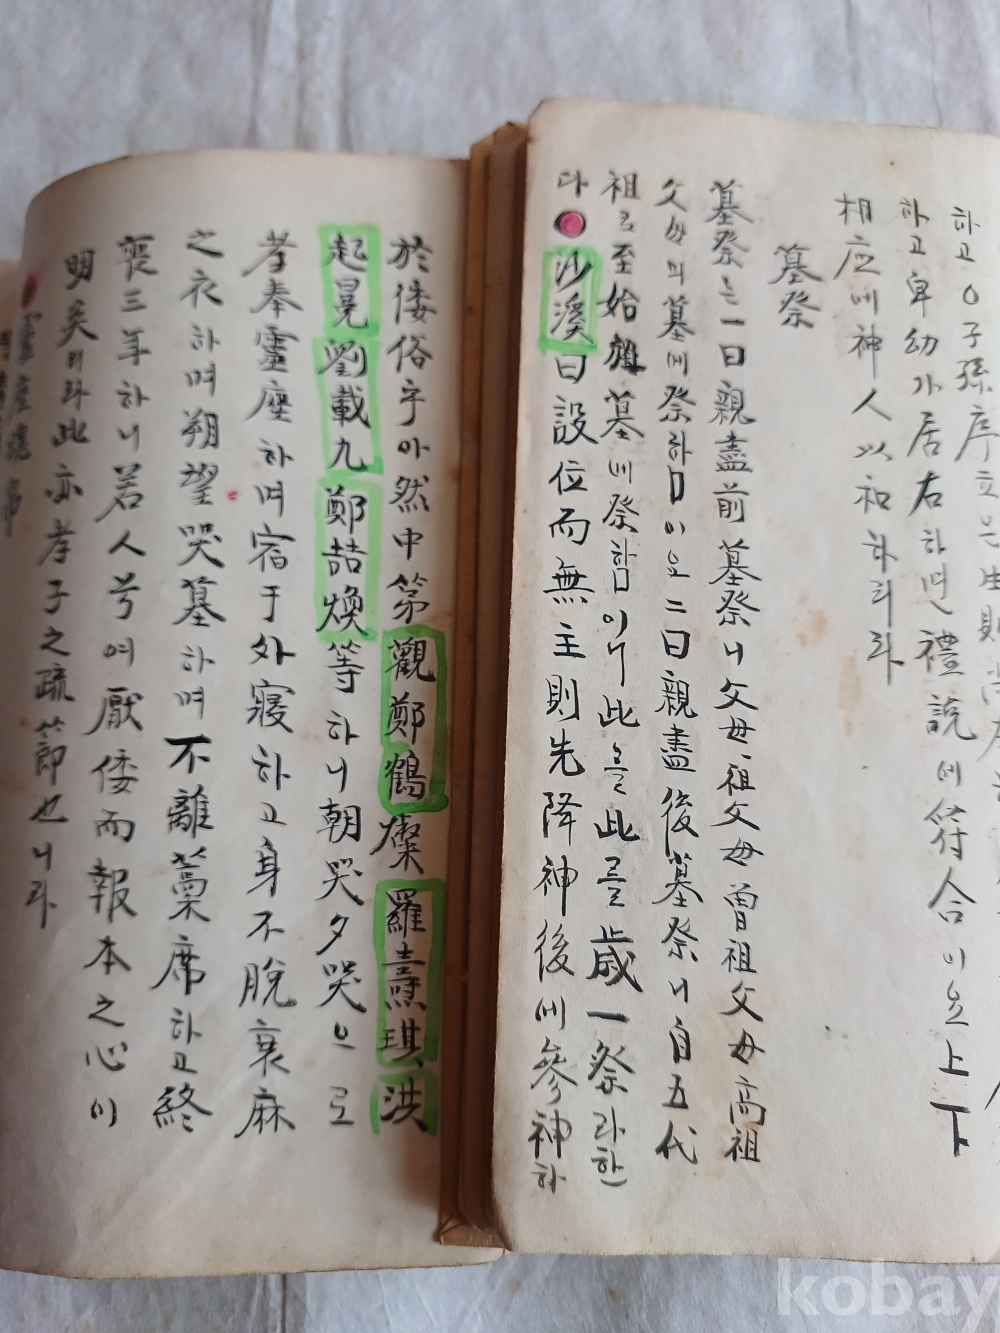 하고 子孫序立은生則
하고卑幼가居右하며禮說에符合이요上下
相应에神人以和하리라
墓祭
墓祭는一曰親盡前墓祭니父母、祖父母曾祖父母高祖
父母의墓에祭하口이요二曰親盡後墓祭니自五代
祖로至始祖墓에祭함이니此를此를歲一祭라한
다 沙溪曰設位而無主則先降神後에參神하
於倭俗乎아然中第觀鄭鶴燦羅燾琪洪
起晃劉載九鄭喆煥等하니朝哭夕哭으로
孝奉靈座하며宿于外寢하고身不脫衰麻
之衣하며朔望哭墓하며不離藁席하고終
喪三年하니若人兮여厭倭而報本之心이
明矣리라此亦孝子之疏節也니라
靈座
kobay